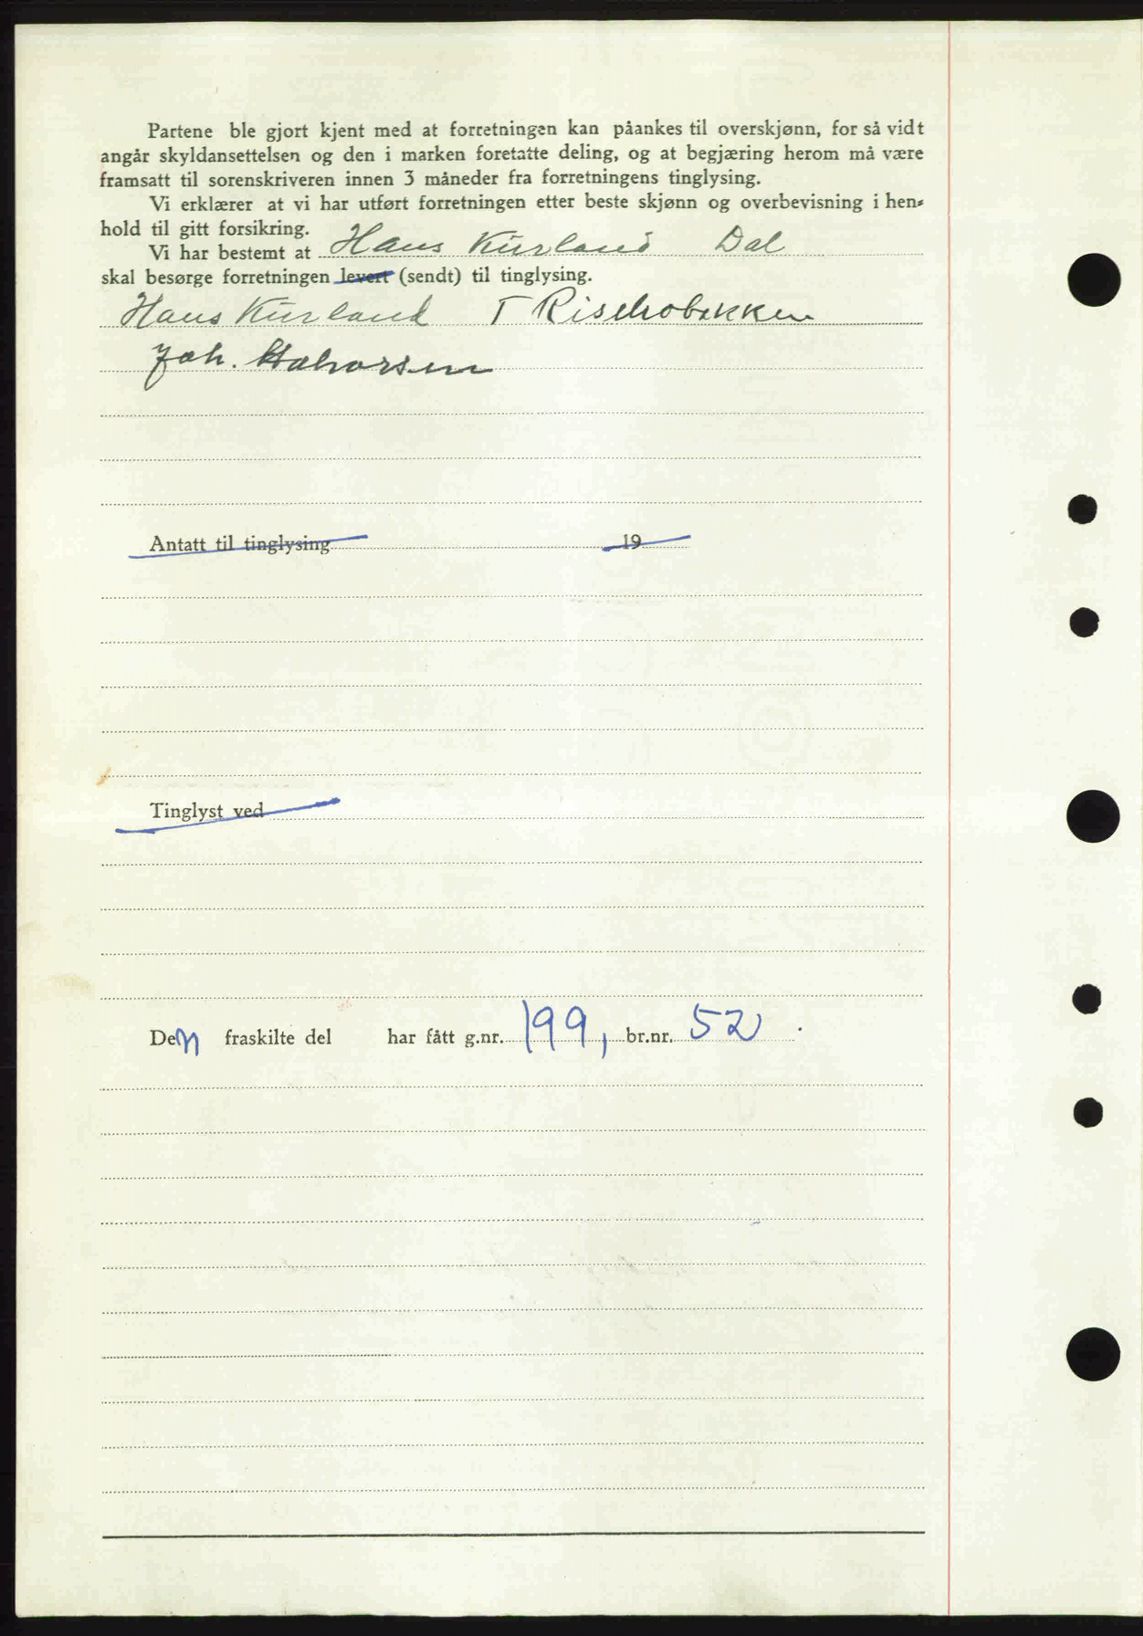 Partene ble gjort kjent med at forretningen kan påankes til overskjønn, for så vidt
angår skyldansettelsen og den i marken foretatte deling, og at begjæring herom må være
framsatt til sorenskriveren innen 3 måneder fra forretningens tinglysing.
Vi erklærer at vi har utført forretningen etter beste skjønn og overbevisning i hen-
hold til gitt forsikring.
Vi har bestemt at Hans Kurland Dal
skal besørge forretningen levert (sendt) til tinglysing.
Hans Kurland T
Joh. Halvorsen
Antatt til tinglysing 19
Tinglyst ved
Den fraskilte del har fått g.nr. 199, br.nr. 52.